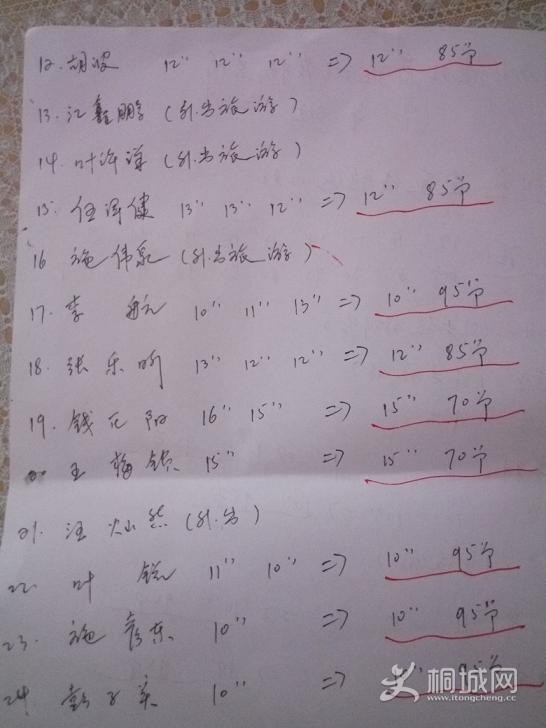 12. 胡峻 12'' 12'' 12'' => 12'' 85节
13. 江鑫鹏 (外出旅游)
14. 叶许谋 (外出旅游)
15. 任泽健 13'' 13'' 12'' => 12'' 85节
16 施伟 (外出旅游)
17. 李航 10'' 11'' 13'' => 10'' 95节
18. 张乐昕 13'' 12'' 12'' => 12'' 85节
19. 钱元阳 16'' 15'' => 15'' 70节
王梅 15'' => 15'' 70节
21. 汪灿然 (外出)
22. 叶锐 11'' 10'' => 10'' 95节
23. 施彦东 10'' => 10'' 95节
24 10'' => 95节
桐城网
www.itongcheng.cc